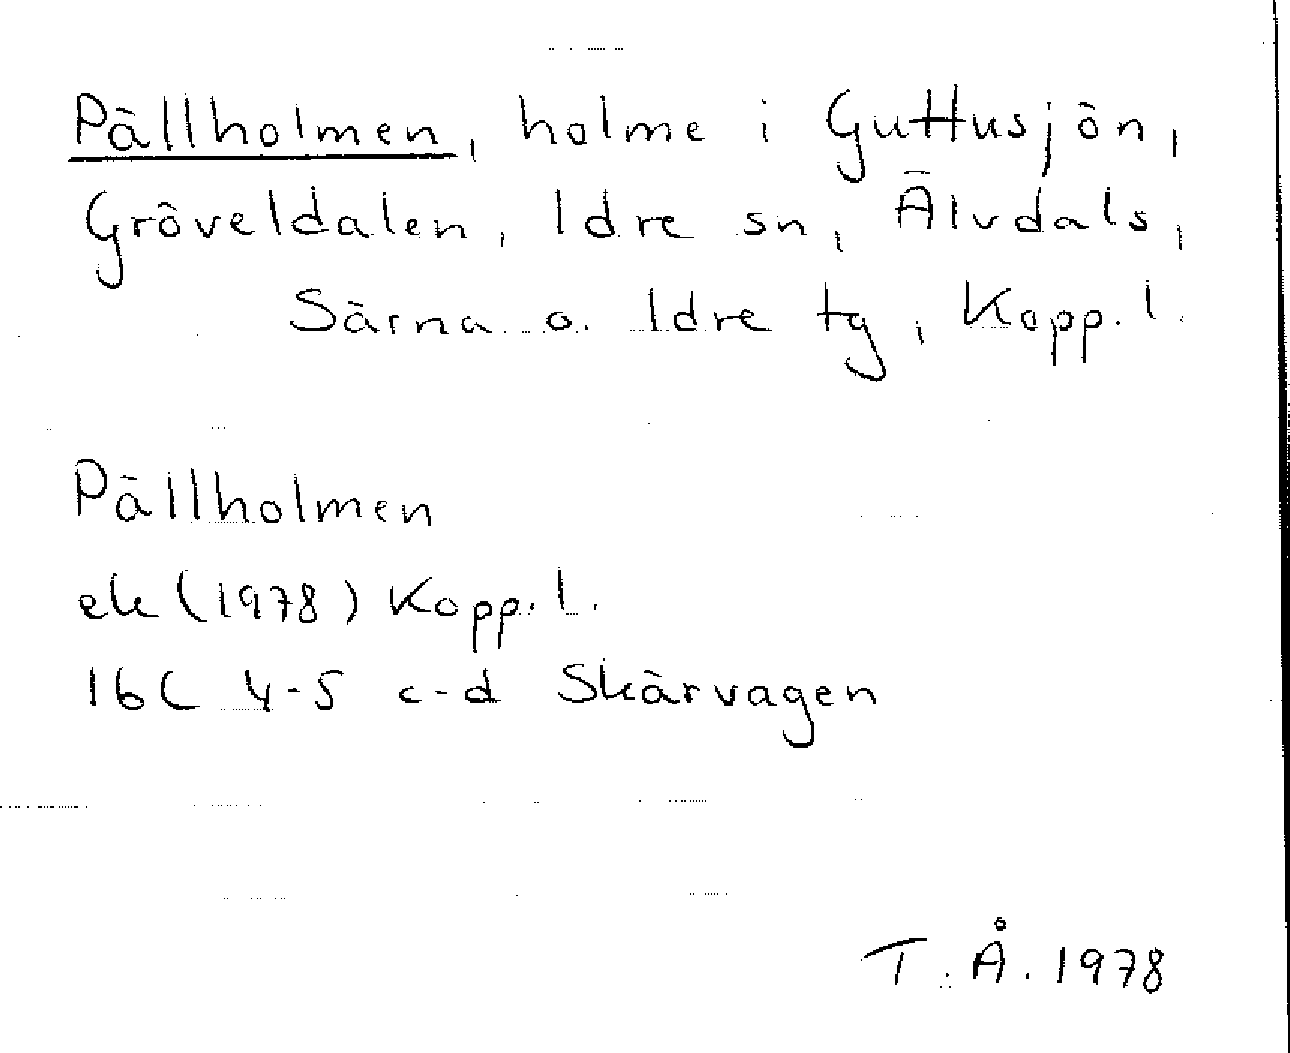 Pällholmen, holme i Guttusjön,
Gröveldalen, Idre sn, Älvdals,
Särna o. Idre tg, Kopp. l.
Pällholmen
ek (1978) Kopp. l.
16C 4-5 c-d Skärvagen
T. Å. 1978